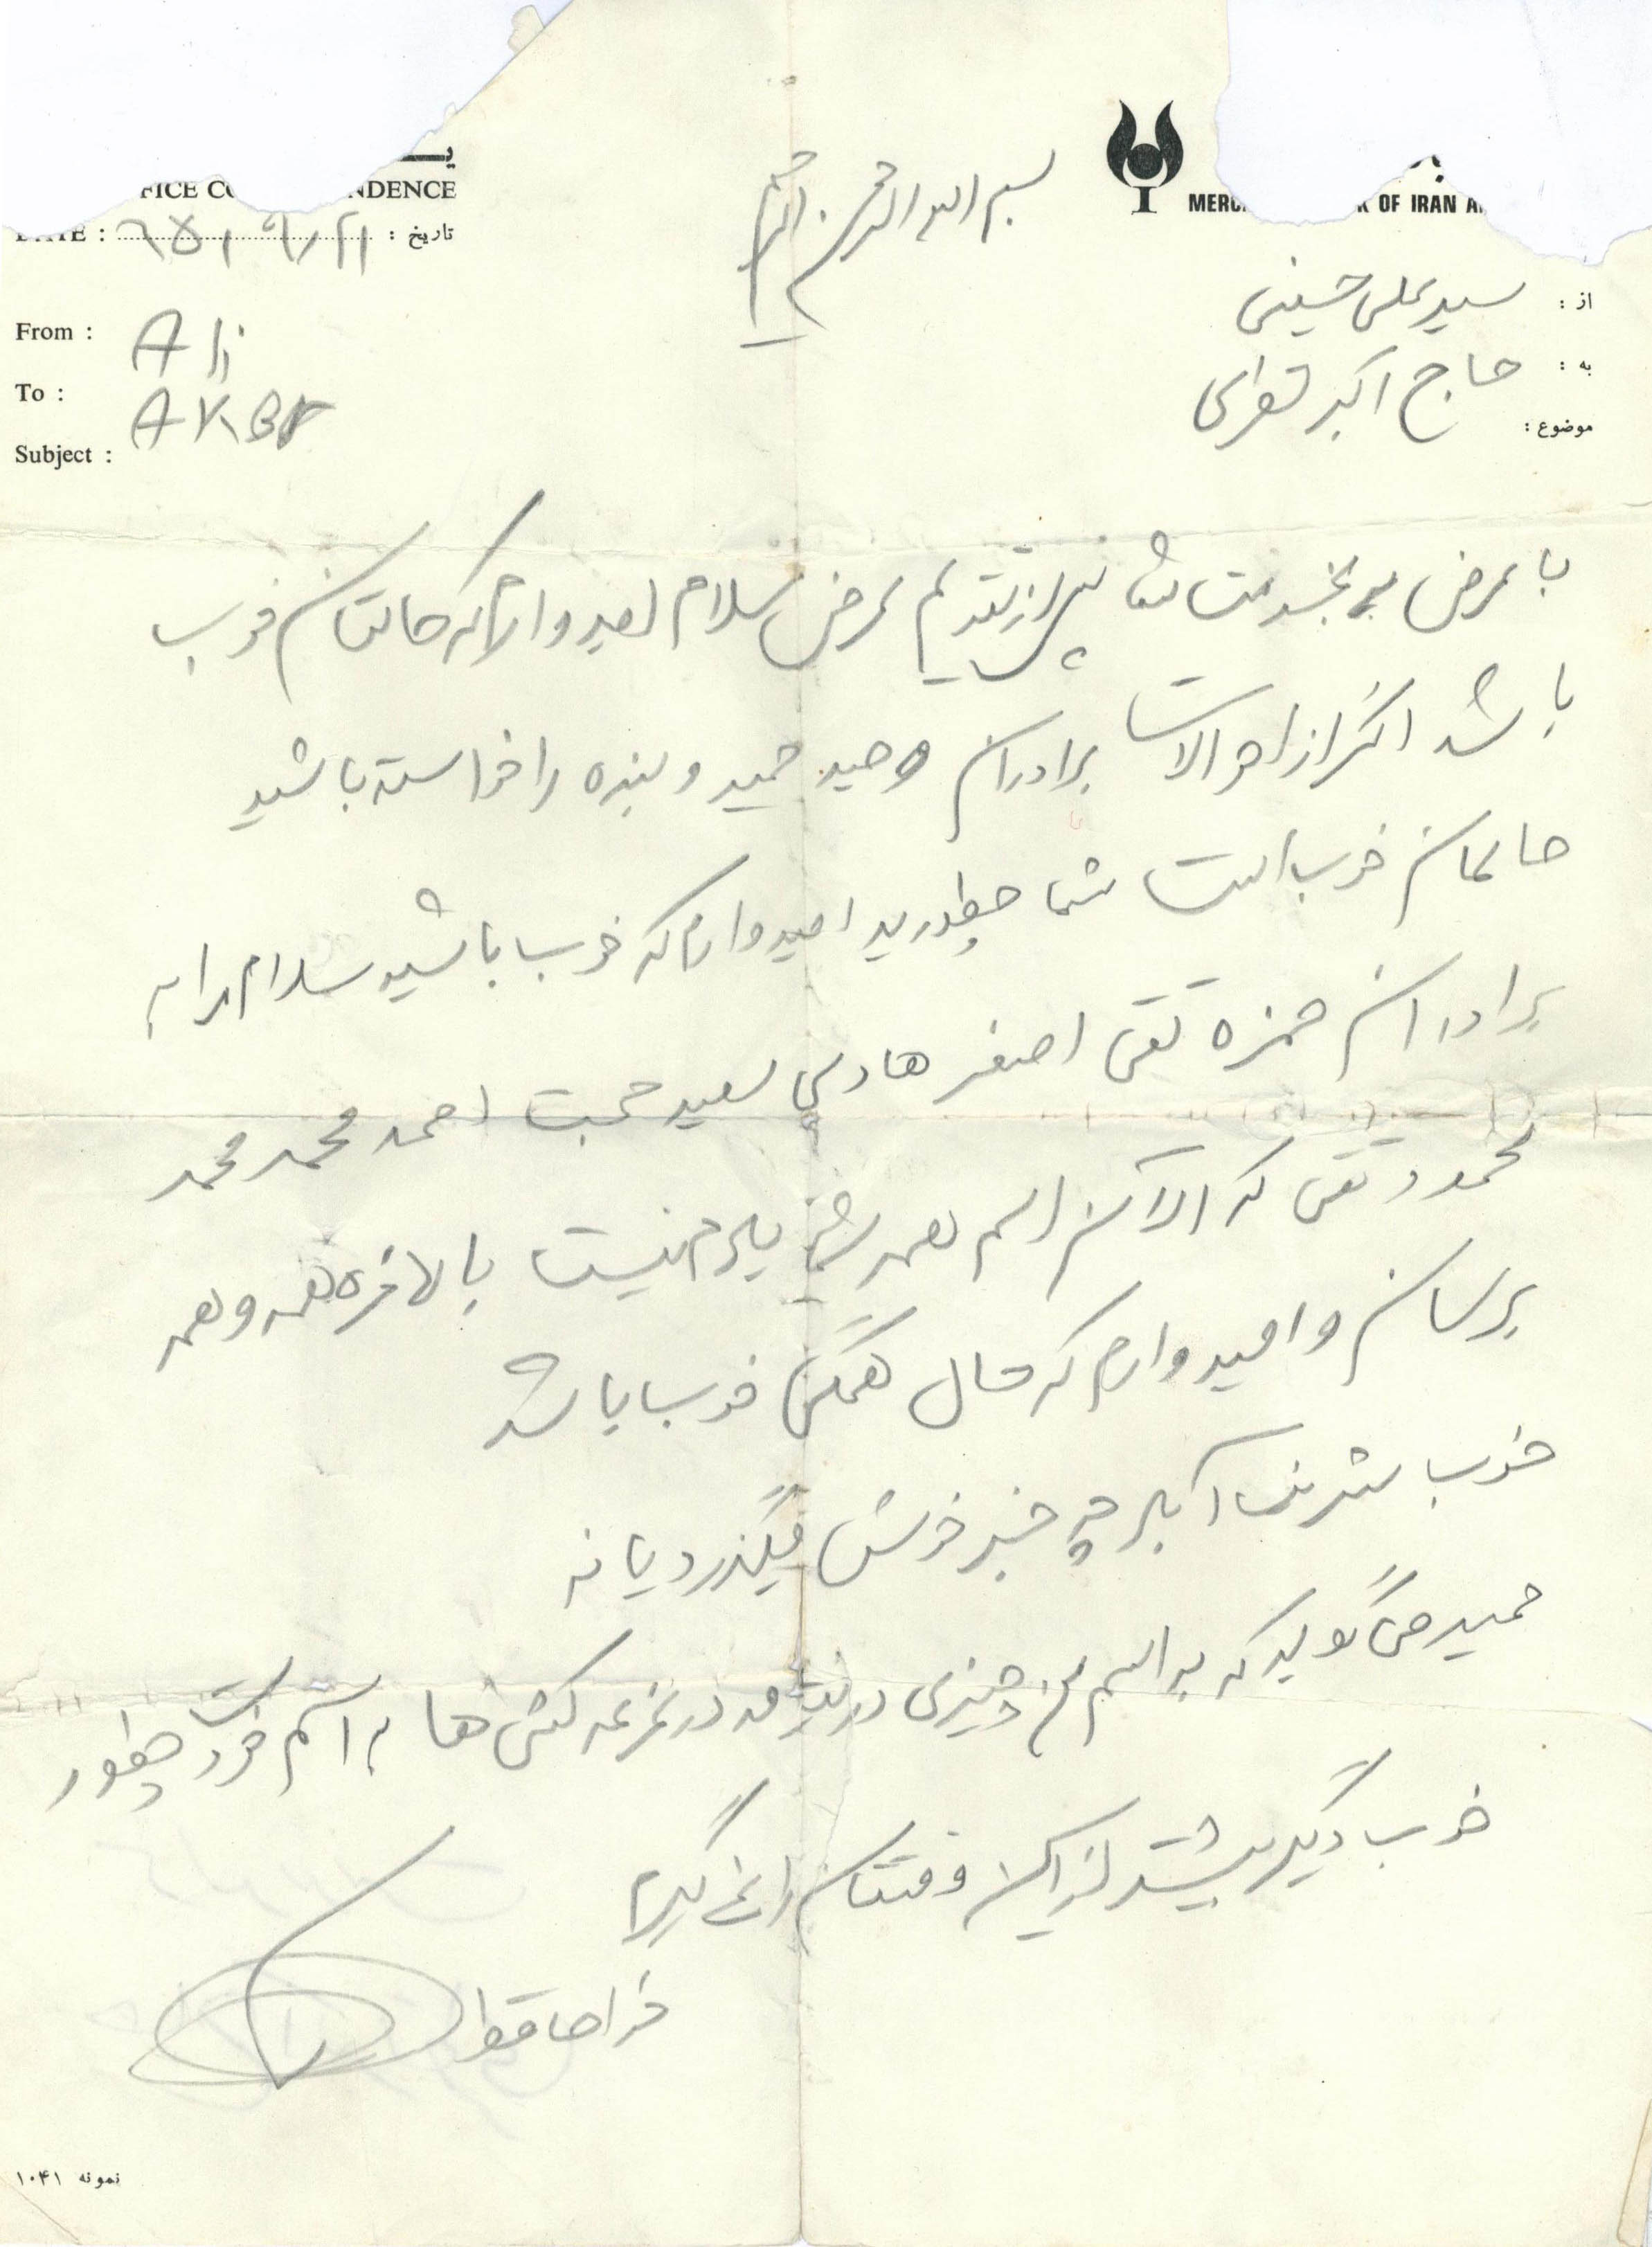 بسم الله الرحمن الرحیم
MERC K OF IRAN A
FICE CO NDENCE
DATE : ۶۵/۹/۲۱ تاریخ :
From : Ali
از : سید علی حسینی
To : AKBr
به : حاج اکبر
Subject :
موضوع :
با عرض بخدمت شما پس از تقدیم عرض سلام امیدوارم که حالتان خوب
باشد اگر از احوالات برادران وحید حمید و بنده را خواسته باشید
حالمان خوب است شما چطورید امیدوارم که خوب باشید سلام مرا به
برادران حمزه تقی اصغر هادی سعید محبت احمد محمد محمد
محمود تقی که الآن اسم همه شما یادم نیست بالاخره همه و همه
برسان و امیدوارم که حال همگی خوب باشد
خوب اکبر چه خبر خوش میگذرد یا نه
حمید می گوید که به اسم من چیزی در نیامد در قرعه کشی ها به اسم خودت چطور
خوب دیگر بیشتر از این وقتتان را نمی گیرم
خداحافظ
نمونه ۱۰۴۱